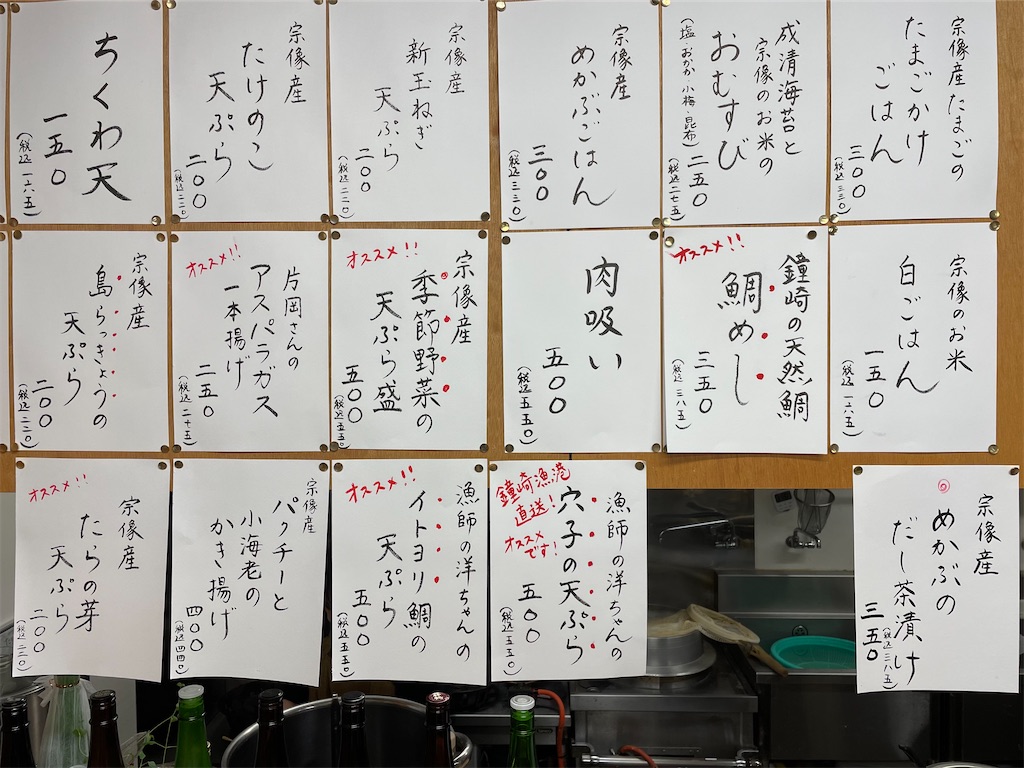 宗像産たまごの
たまごかけ
ごはん
三00
(税込 三三0)
成清海苔と
宗像のお米の
おむすび
(塩 おかか 小梅 昆布)
二五0
(税込 二七五)
宗像産
めかぶごはん
三00
(税込 三三0)
宗像産
新玉ねぎ
天ぷら
二00
(税込 二二0)
宗像産
たけのこ
天ぷら
二00
(税込 二二0)
ちくわ天
一五0
(税込 一六五)
宗像のお米
白ごはん
一五0
(税込 一六五)
オススメ!!
鐘崎の天然鯛
鯛めし
三五0
(税込 三八五)
肉吸い
五00
(税込 五五0)
オススメ!!
宗像産
季節野菜の
天ぷら盛
五00
(税込 五五0)
オススメ!!
片岡さんの
アスパラガス
一本揚げ
二五0
(税込 二七五)
宗像産
島らっきょうの
天ぷら
二00
(税込 二二0)
宗像産
めかぶの
だし茶漬け
三五0
(税込 三八五)
鐘崎漁港
直送!
オススメ
です!
漁師の洋ちゃんの
穴子の天ぷら
五00
(税込 五五0)
オススメ!!
漁師の洋ちゃんの
イトヨリ鯛の
天ぷら
五00
(税込 五五0)
宗像産
パクチーと
小海老の
かき揚げ
四00
(税込 四四0)
オススメ!!
宗像産
たらの芽
天ぷら
二00
(税込 二二0)